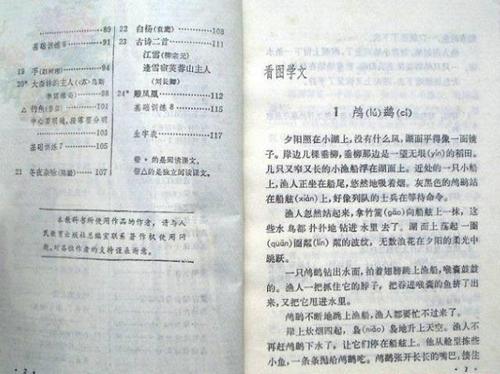 89
基础训练6 91
19 手 94
20* 大森林的主人 98
△ 钓鱼 103
中心要明确，段落要分明 105
基础训练7 107
21 冬夜杂咏(陈毅) 105
22 白杨(袁鹰) 108
23 古诗二首 111
江雪(柳宗元)
逢雪宿芙蓉山主人
(刘长卿)
24* 雕凤凰 112
基础训练8 115
生字表 117
带*的是阅读课文，
带△的是独立阅读课文。
本教科书所使用作品的作者，请与人
民教育出版社总编室联系著作权使用问
题，对各位作者的支持谨表谢意。
· 2 ·
看图学文
1 鸬(lú)鹚(cí)
夕阳照在小湖上，没有什么风，湖面平得像一面镜
子。岸边几棵垂柳，垂柳那边是一望无垠(yín)的稻田。
几只又窄又长的小渔船浮在湖面上。近处的一只小船
上，渔人正坐在船尾，悠然地吸着烟。灰黑色的鸬鹚站
在船舷(xián)上，好像列队的士兵在等待命令。
渔人忽然站起来，拿竹篙(gāo)向船舷上一抹，这
些水鸟都扑扑地钻进水里去了。湖面上荡起一圈
(quān)圈粼(lín)粼的波纹，无数浪花在夕阳的柔光中
跳跃。
一只鸬鹚钻出水面，拍着翅膀跳上渔船，喉囊鼓鼓
的。渔人一把抓住它的脖子，把吞进喉囊的鱼挤了出
来，又把它甩进水里。
鸬鹚不断地跳上渔船，渔人都要忙不过来了。
岸上炊烟四起，袅(niǎo)袅地升上天空。渔人不
再赶鸬鹚下水了，让它们停在船舷上。他从舱里拣些
小鱼，一条条抛给鸬鹚吃。鸬鹚张开长长的嘴巴，接住
· 1 ·